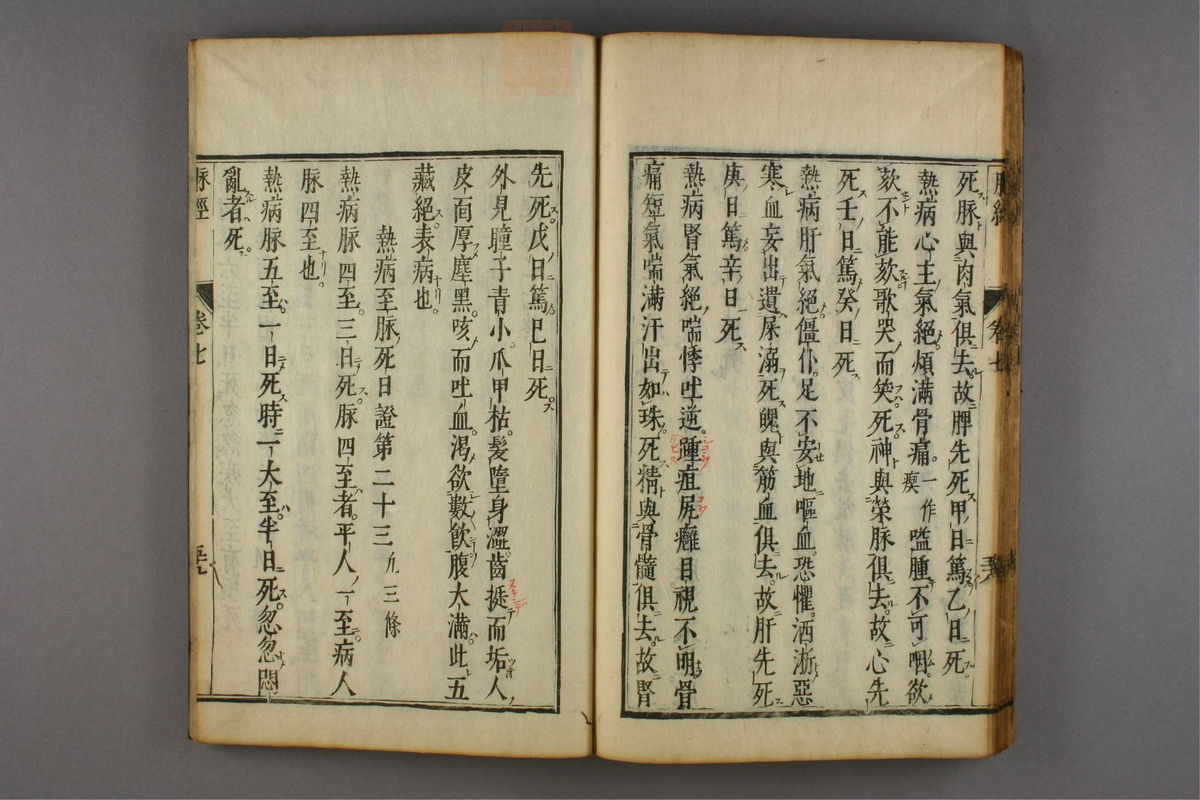 脉經 卷七
死脉與肉氣俱去故脾先死甲日篤乙日死
熱病心主氣絕煩滿骨痛一作瘈嗌腫不可咽欲
欬不能欬歌哭而笑死神與榮脉俱去故心先
死壬日篤癸日死
熱病肝氣絕僵仆足不安地嘔血恐懼洒淅惡
寒血妄出遺屎溺死魄與筋血俱去故肝先死
庚日篤辛日死
熱病腎氣絕喘悸吐逆腫疽尻癰目視不明骨
痛短氣喘滿汗出如珠死精與骨髓俱去故腎
先死戊日篤巳日死
外見瞳子青小爪甲枯髮墮身澀齒挺而垢人
皮面厚塵黑咳而吐血渴欲數飲腹大滿此五
藏絕表病也
熱病至脉死日證第二十三 凡三條
熱病脉四至三日死脉四至者平人一至病人
脉四至也
熱病脉五至一日死時一大至半日死忽忽悶
亂者死
脉經 卷七